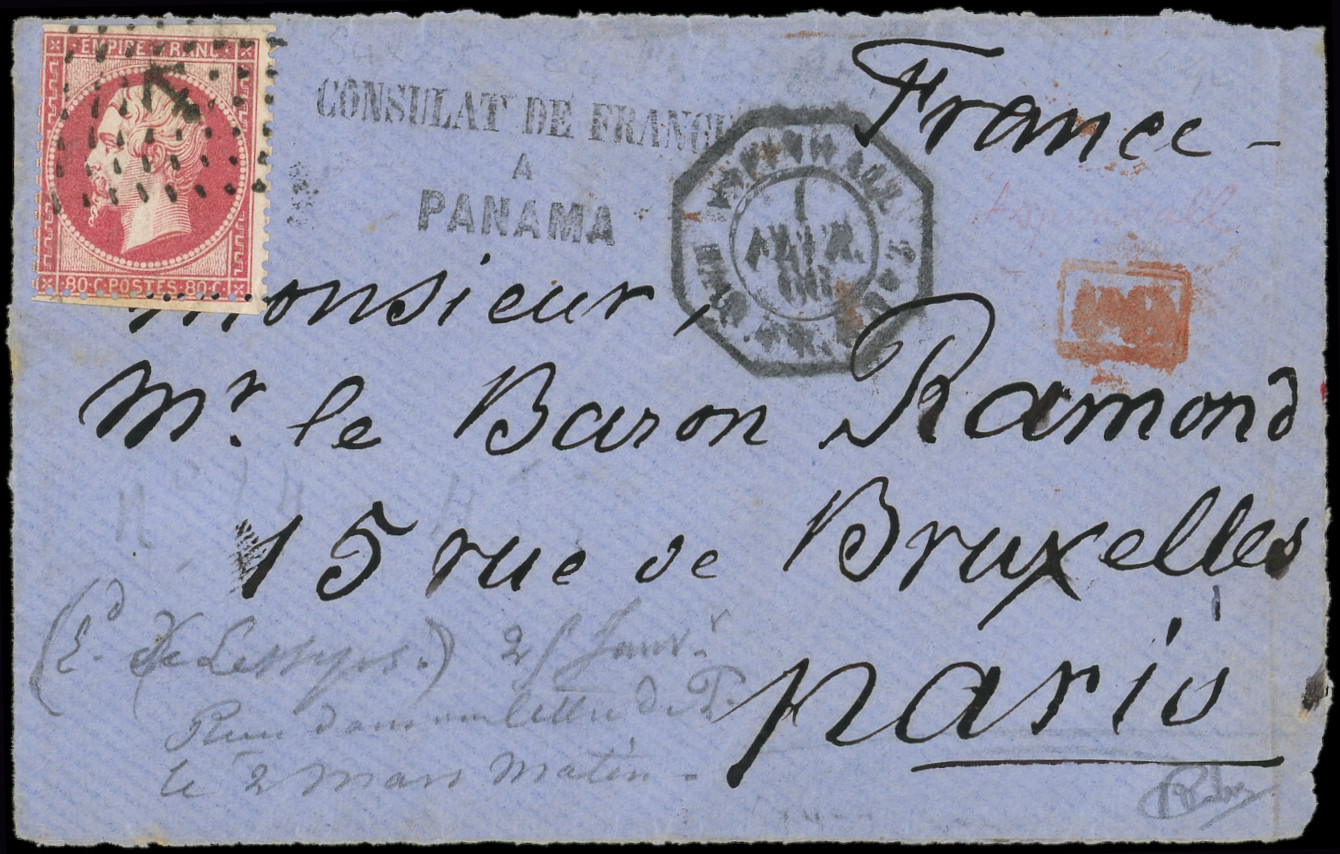 EMPIRE FRANC
80·C·POSTES·80·C
CONSULAT DE FRANCE
A
PANAMA
France -
Aspinwall
Monsieur,
Mr. le Baron Ramond
15 rue de Bruxelles
Paris
(Ed. de Lesseps.) 25 Janvr.
dans une lettre de P.
le 2 Mars Matin -